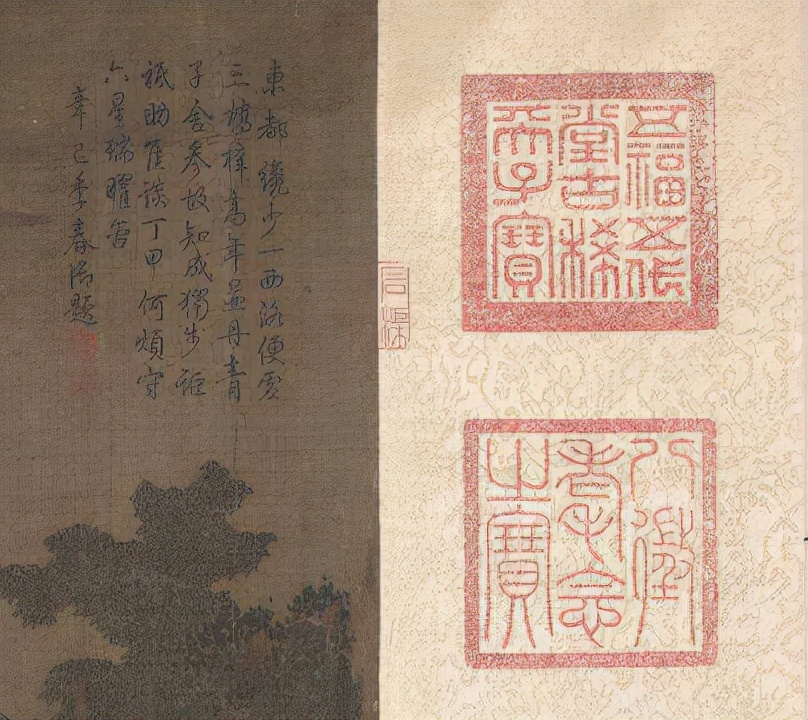 東都纔少一西洛便
三樣高年丹青
子舍參故知成獨步詎
祇助談丁甲何煩守
六星瑞曜
辛巳季春御題
五福五代
堂古稀
天子寶
八徵
耄念
之寶